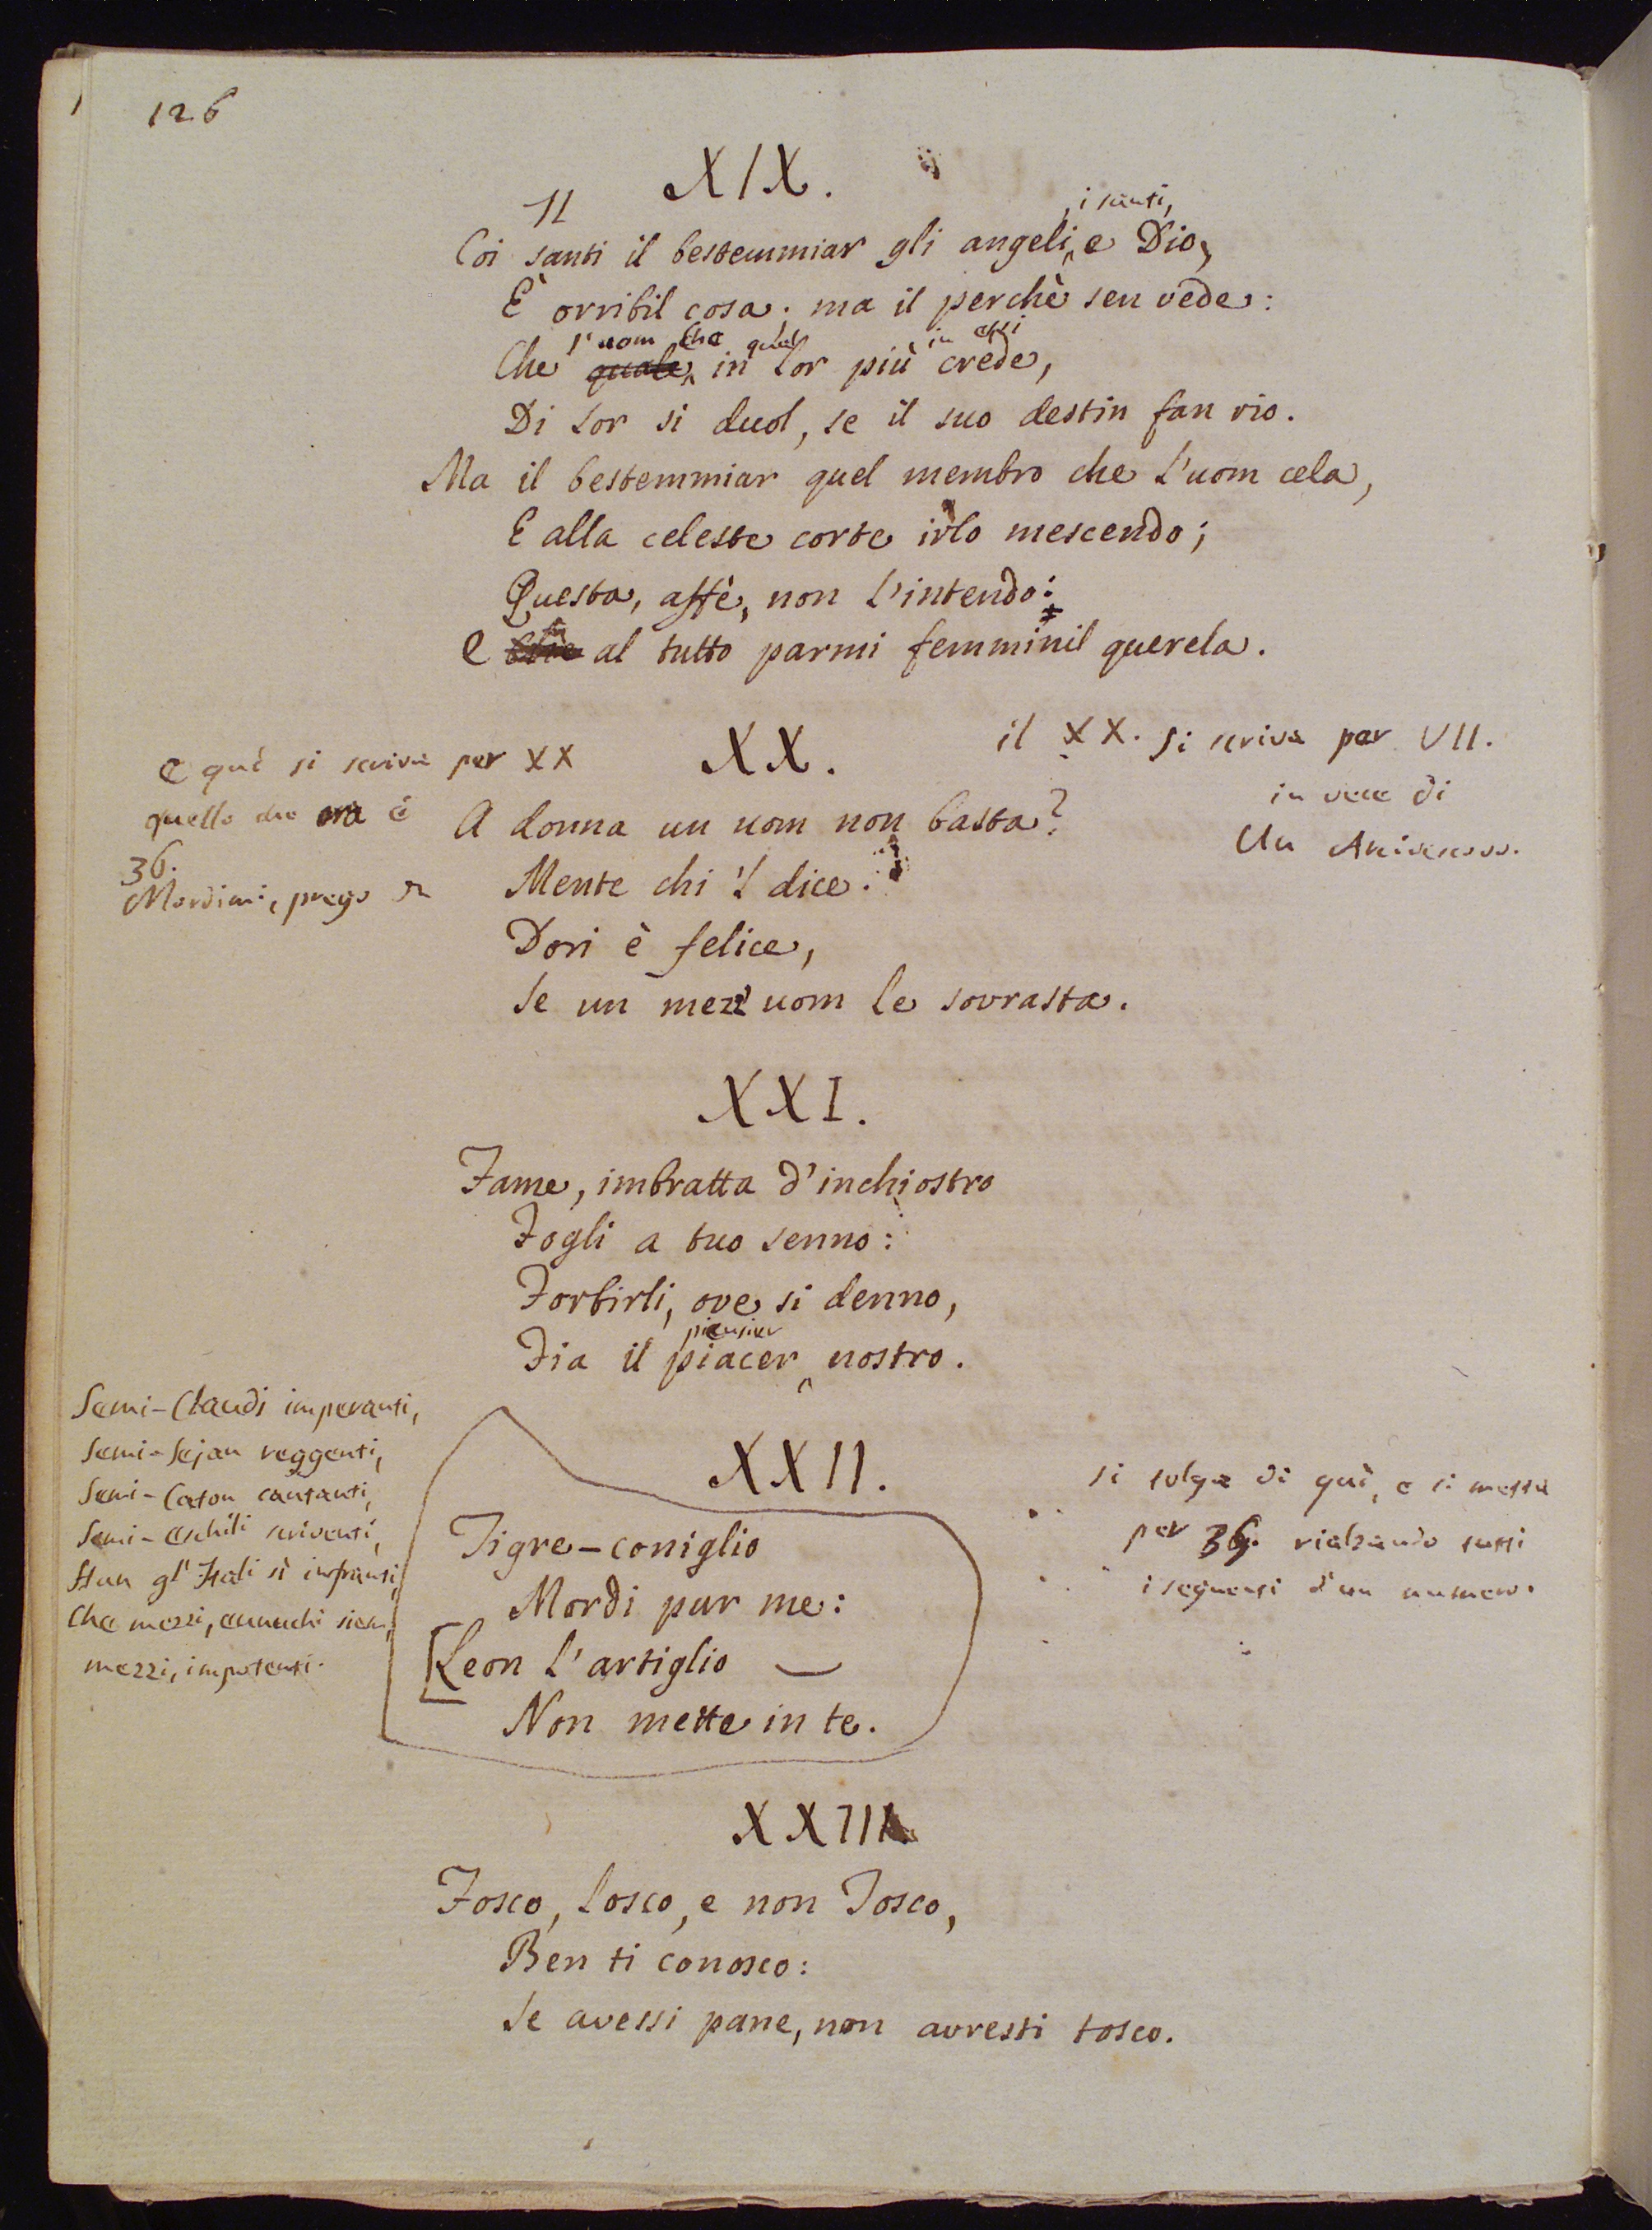 126
XIX.
Il
, i santi,
Coi santi il bestemmiar gli angeli e Dio,
È orribil cosa; ma il perchè sen vede:
l'uom che quel in essi
Che quale in lor più crede,
Di lor si duol, se il suo destin fan rio.
Ma il bestemmiar quel membro che l'uom cela,
E alla celeste corte irlo mescendo;
Questa, affè, non l'intendo:
E al tutto parmi femminil querela.
il XX. si scriva per VII.
in vece di
Un
e quì si scriva per XX
quello che ora è
36.
Mordimi, prego
XX.
A donna un uom non basta?
Mente chi 'l dice:
Dori è felice,
Se un mezz'uom le sovrasta.
XXI.
Fame, imbratta d'inchiostro
Fogli a tuo senno:
Forbirli, ove si denno,
pensier
Fia il piacer nostro.
Semi-Claudj imperanti,
Semi-Sejan reggenti,
Semi-Caton cantanti,
Semi-eschili scriventi,
Stan gl'Itali sì infranti,
Che mezzi, eunuchi sien,
mezzi, impotenti.
XXII.
Tigre-coniglio
Mordi pur me:
Leon l'artiglio —
Non mette in te.
si tolga di quì, e si metta
per 36. rialzando tutti
i seguenti d'un numero.
XXIII
Fosco, losco, e non Tosco,
Ben ti conosco:
Se avessi pane, non avresti tosco.